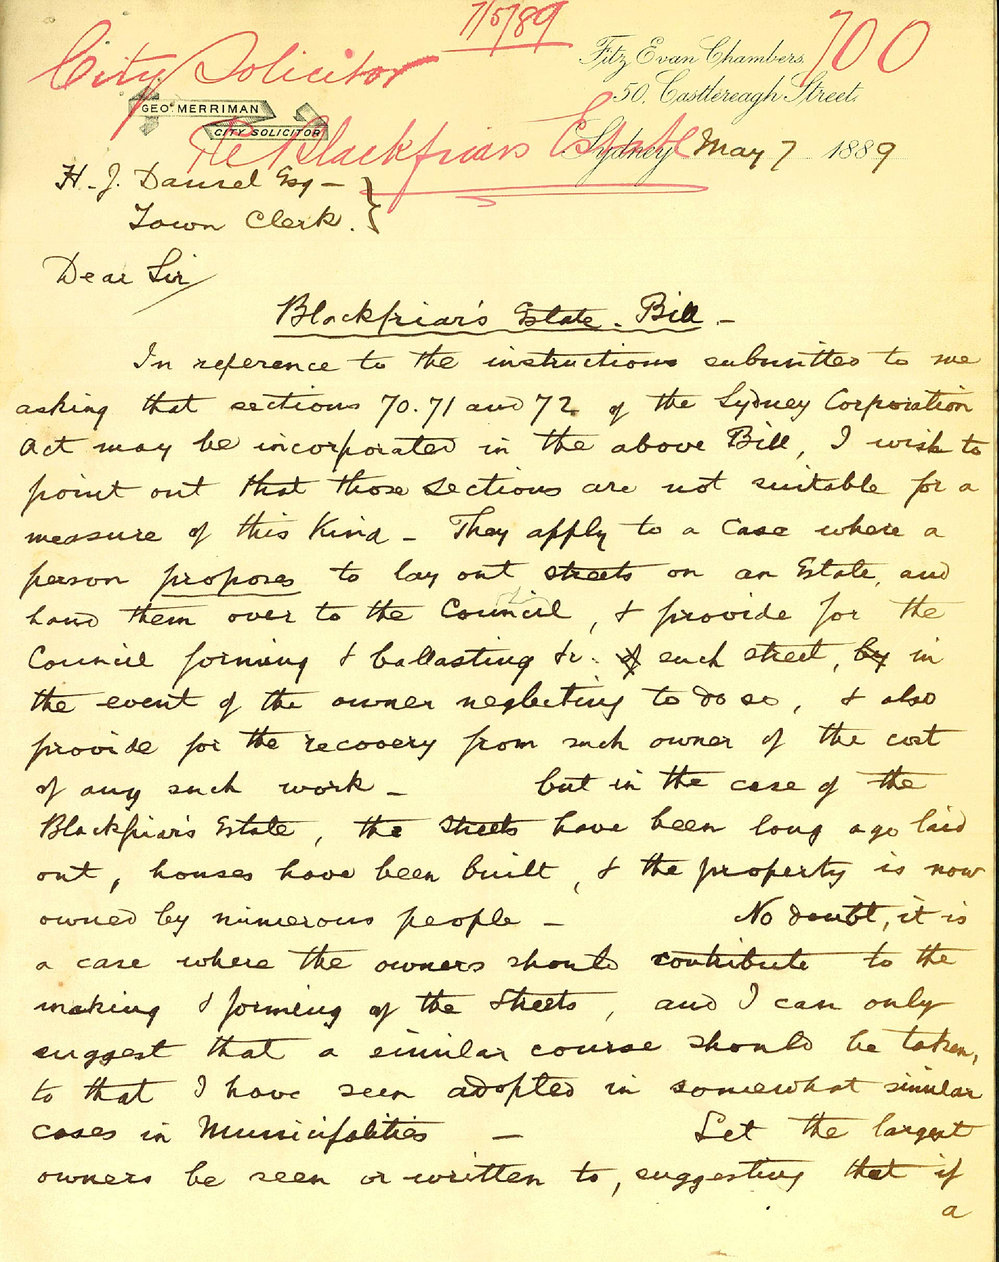 7/5/89
700
City Solicitor
Re Blackfriars Estate
GEO. MERRIMAN
CITY SOLICITOR
Fitz Evan Chambers,
50, Castlereagh Street,
Sydney May 7 1889
H. J. Daniel Esq -
Town Clerk. }
Dear Sir
Blackfriar's Estate. Bill -
In reference to the instructions submitted to me
asking that sections 70. 71 and 72. of the Sydney Corporation
Act may be incorporated in the above Bill, I wish to
point out that those sections are not suitable for a
measure of this Kind - They apply to a case where a
person proposes to lay out streets on an Estate, and
hand them over to the Council, & provide for the
Council forming & ballasting &c. of such street, by in
the event of the owner neglecting to do so, & also
provide for the recovery from such owner of the cost
of any such work - but in the case of the
Blackfriar's Estate, the streets have been long ago laid
out, houses have been built, & the property is now
owned by numerous people - No doubt, it is
a case where the owners should contribute to the
making & forming of the streets, and I can only
suggest that a similar course should be taken,
to that I have seen adopted in somewhat similar
cases in Municipalities - Let the largest
owners be seen or written to, suggesting that if
a